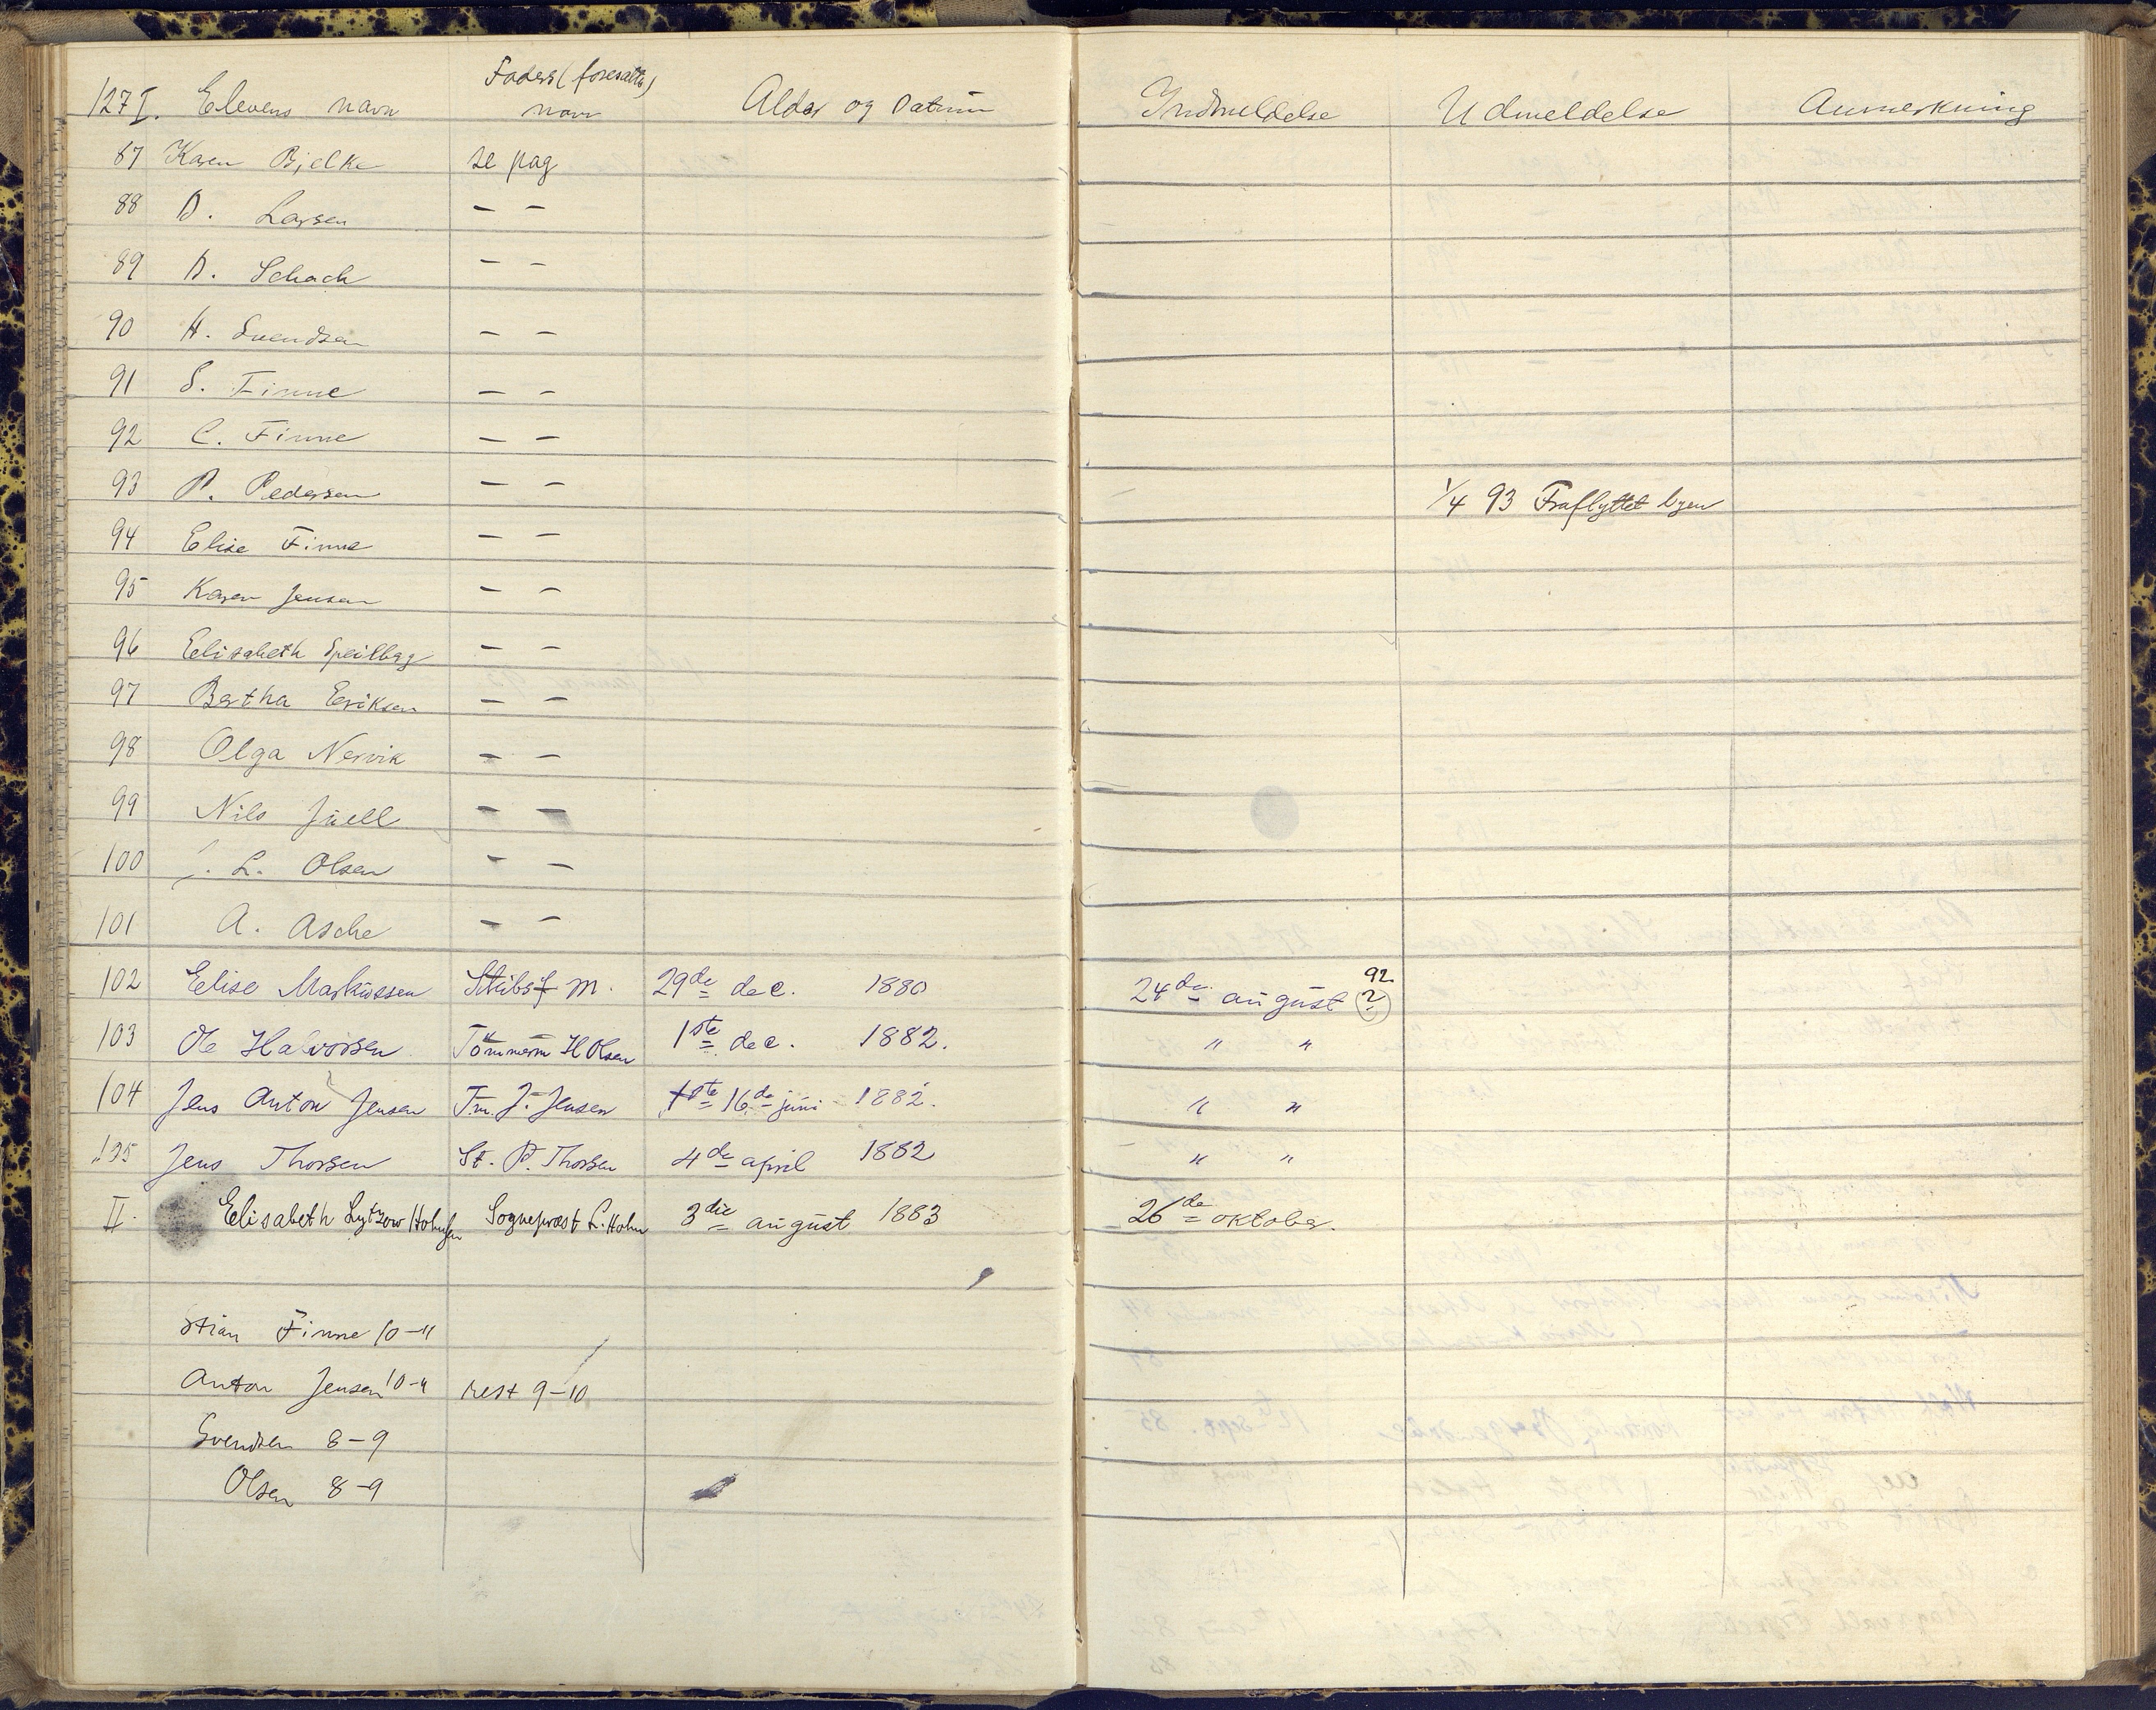 127 I. Elevens navn Faders (foresattes) navn Alder og Datum Indmeldelse Udmeldelse Anmerkning
87 Karen Bjelke se pag
88 D. Larsen – –
89 D. Schach – –
90 H. Svendsen – –
91 S. Finne – –
92 C. Finne – –
93 P. Pedersen – – 1/4 93 Fraflyttet byen
94 Elise Finne – –
95 Karen Jensen – –
96 Elisabeth – –
97 Bertha Eriksen – –
98 Olga Nervik – –
99 Nils Juell – –
100 L. Olsen – –
101 A. Asche – –
102 Elise Markussen M. 29de dec. 1880 24de august 92 (2)
103 Ole Halvorsen Tömmerm H Olsen 1ste dec. 1882. " "
104 Jens Anton Jensen Tm. J. Jensen 1ste 16de juni 1882. " "
105 Jens Thorsen St. P. Thorsen 4de april 1882 " "
II. Elisabeth Lytzow Sogneprest L. Holm 3die august 1883 26de oktober.
Stian Finne 10–11
Anton Jensen 10–11 rest 9–10
Svendsen 8–9
Olsen 8–9